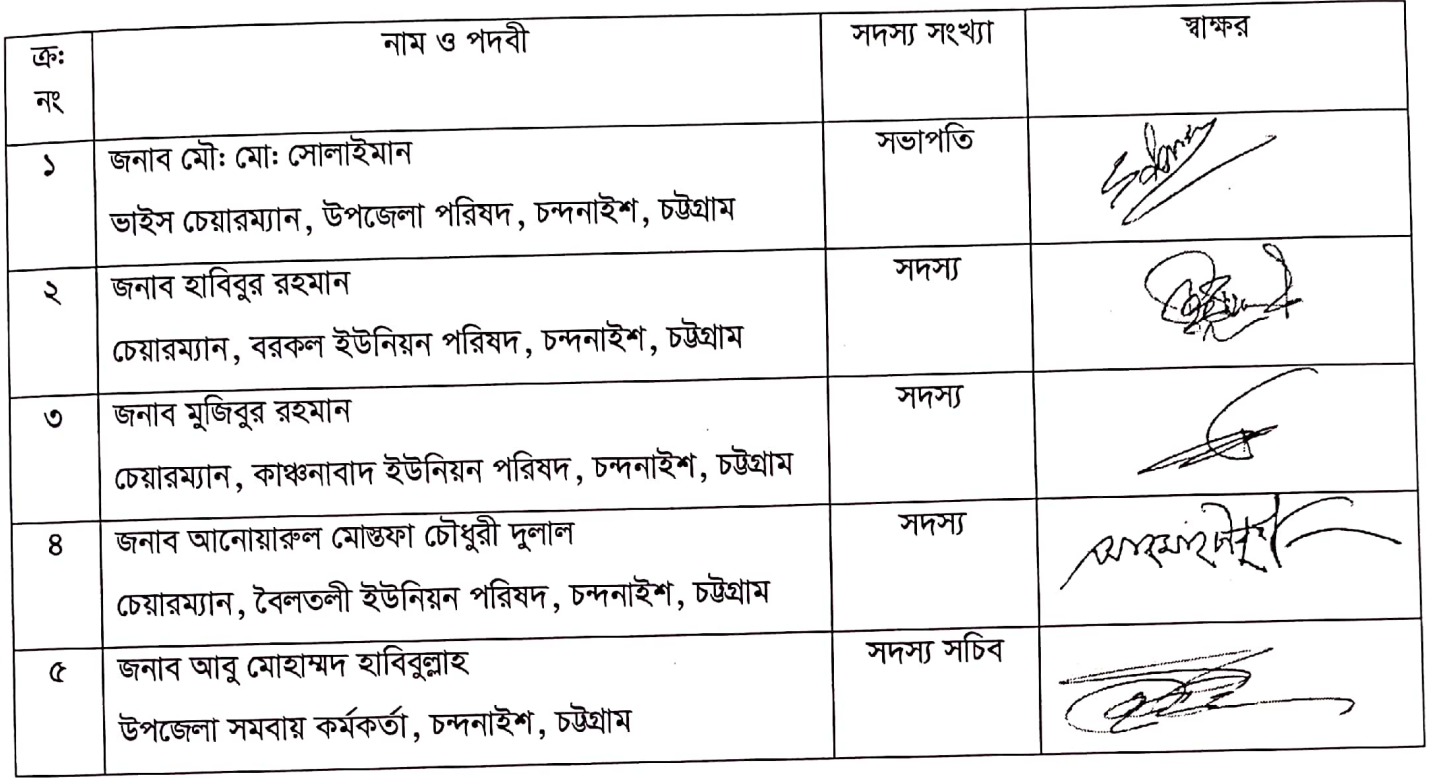 ক্রঃ নং নাম ও পদবী সদস্য সংখ্যা স্বাক্ষর
১ জনাব মৌঃ মোঃ সোলাইমান সভাপতি
ভাইস চেয়ারম্যান, উপজেলা পরিষদ, চন্দনাইশ, চট্টগ্রাম
২ জনাব হাবিবুর রহমান সদস্য
চেয়ারম্যান, বরকল ইউনিয়ন পরিষদ, চন্দনাইশ, চট্টগ্রাম
৩ জনাব মুজিবুর রহমান সদস্য
চেয়ারম্যান, কাঞ্চনাবাদ ইউনিয়ন পরিষদ, চন্দনাইশ, চট্টগ্রাম
৪ জনাব আনোয়ারুল মোস্তফা চৌধুরী দুলাল সদস্য
চেয়ারম্যান, বৈলতলী ইউনিয়ন পরিষদ, চন্দনাইশ, চট্টগ্রাম
৫ জনাব আবু মোহাম্মদ হাবিবুল্লাহ সদস্য সচিব
উপজেলা সমবায় কর্মকর্তা, চন্দনাইশ, চট্টগ্রাম